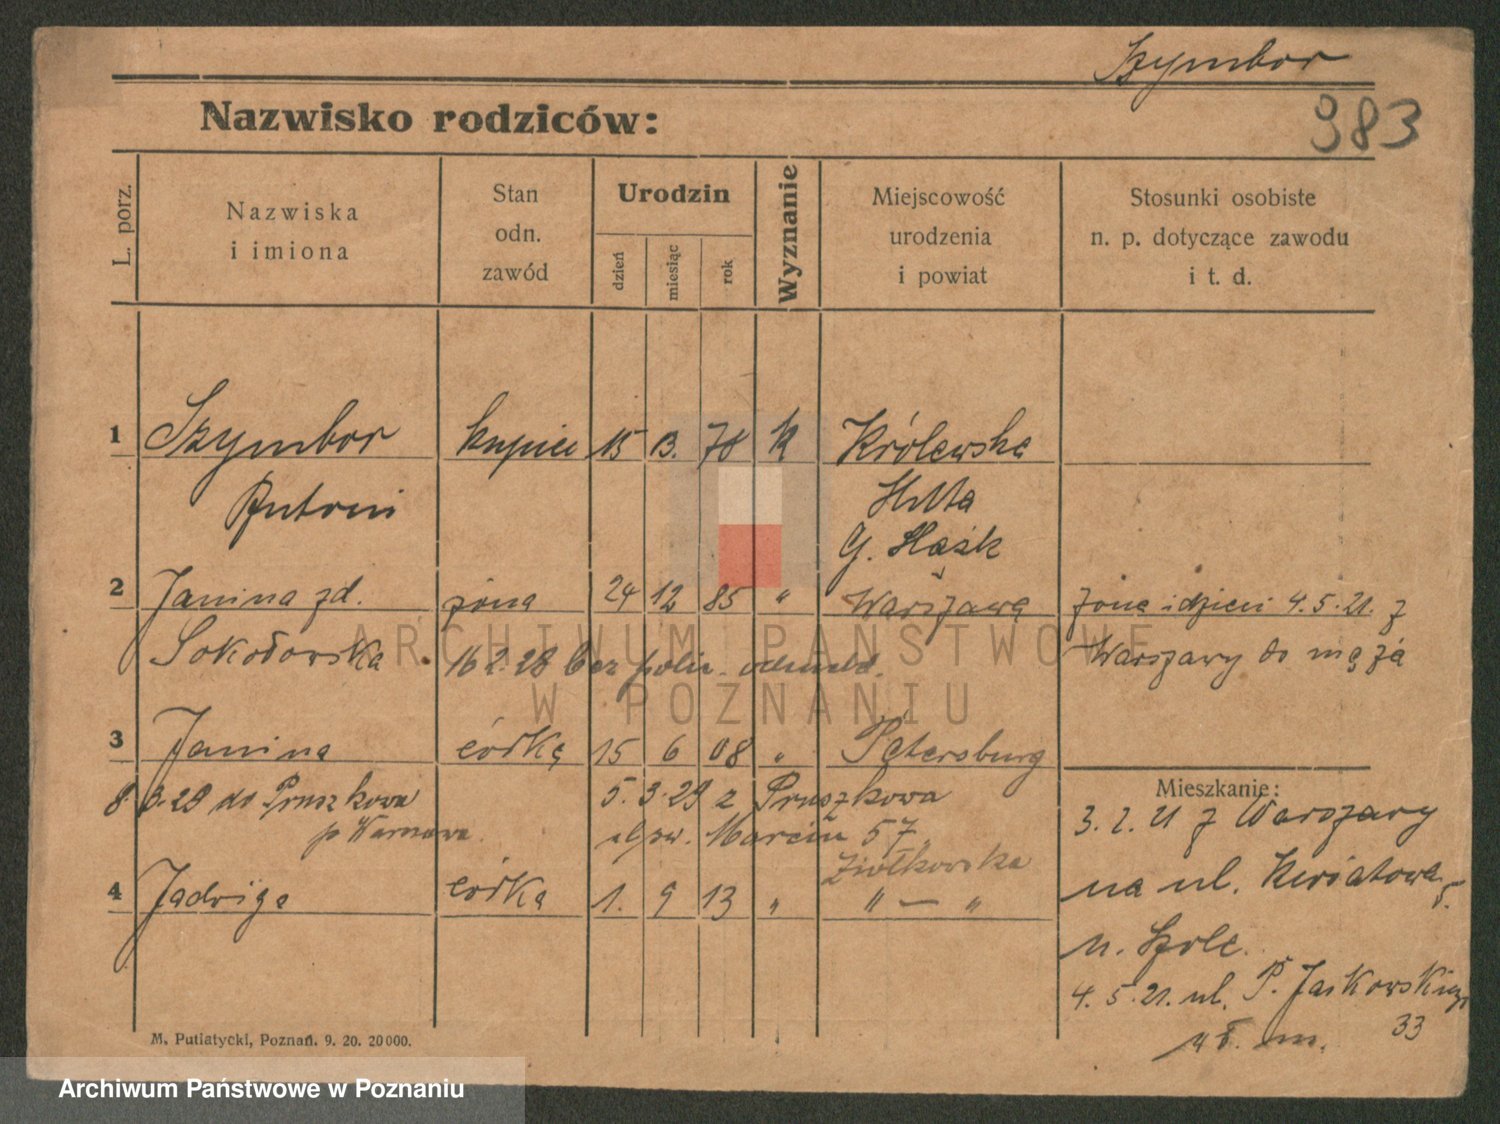 Szymbor
Nazwisko rodziców:
983
L. porz.
Nazwiska
i imiona
Stan
odn.
zawód
Urodzin
dzień
miesiąc
rok
Wyznanie
Miejscowość
urodzenia
i powiat
Stosunki osobiste
n. p. dotyczące zawodu
i t. d.
1 Szymbor kupiec 15 78 k Królewska
Antoni Huta
G. Śląsk
2 Janina zd. żona 24 12 85 " Warszawa żona i dzieci 4.5.21. z
Sokołowska 16 2. 28 bez polic. odmeld. Warszawy do męża
3 Janina córka 15 6 08 " Petersburg
8 3.29 do Pruszkowa 5. 3. 29 z Pruszkowa
p Warszawa Marcin 57
Ziółkowska
4 Jadwiga córka 1. 9 13 " " — "
Mieszkanie:
3. 2. 21 z Warszawy
na ul. Kwiatowa 5.
u. Szolc.
4. 5. 21. ul. P. Jackowskiego
33
u m.
M. Putiatycki, Poznań. 9. 20. 20000.
ARCHIWUM PAŃSTWOWE
W POZNANIU
Archiwum Państwowe w Poznaniu